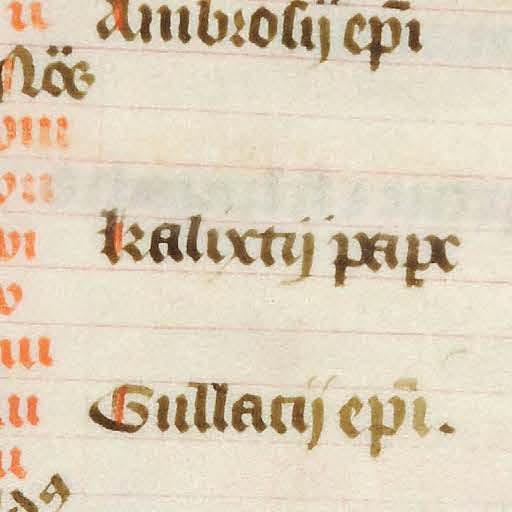 ii Ambrosij ep̄i
Nōs
viii
vii
vi kalixtij pape
v
iiii
iii Gullacij ep̄i.
ii